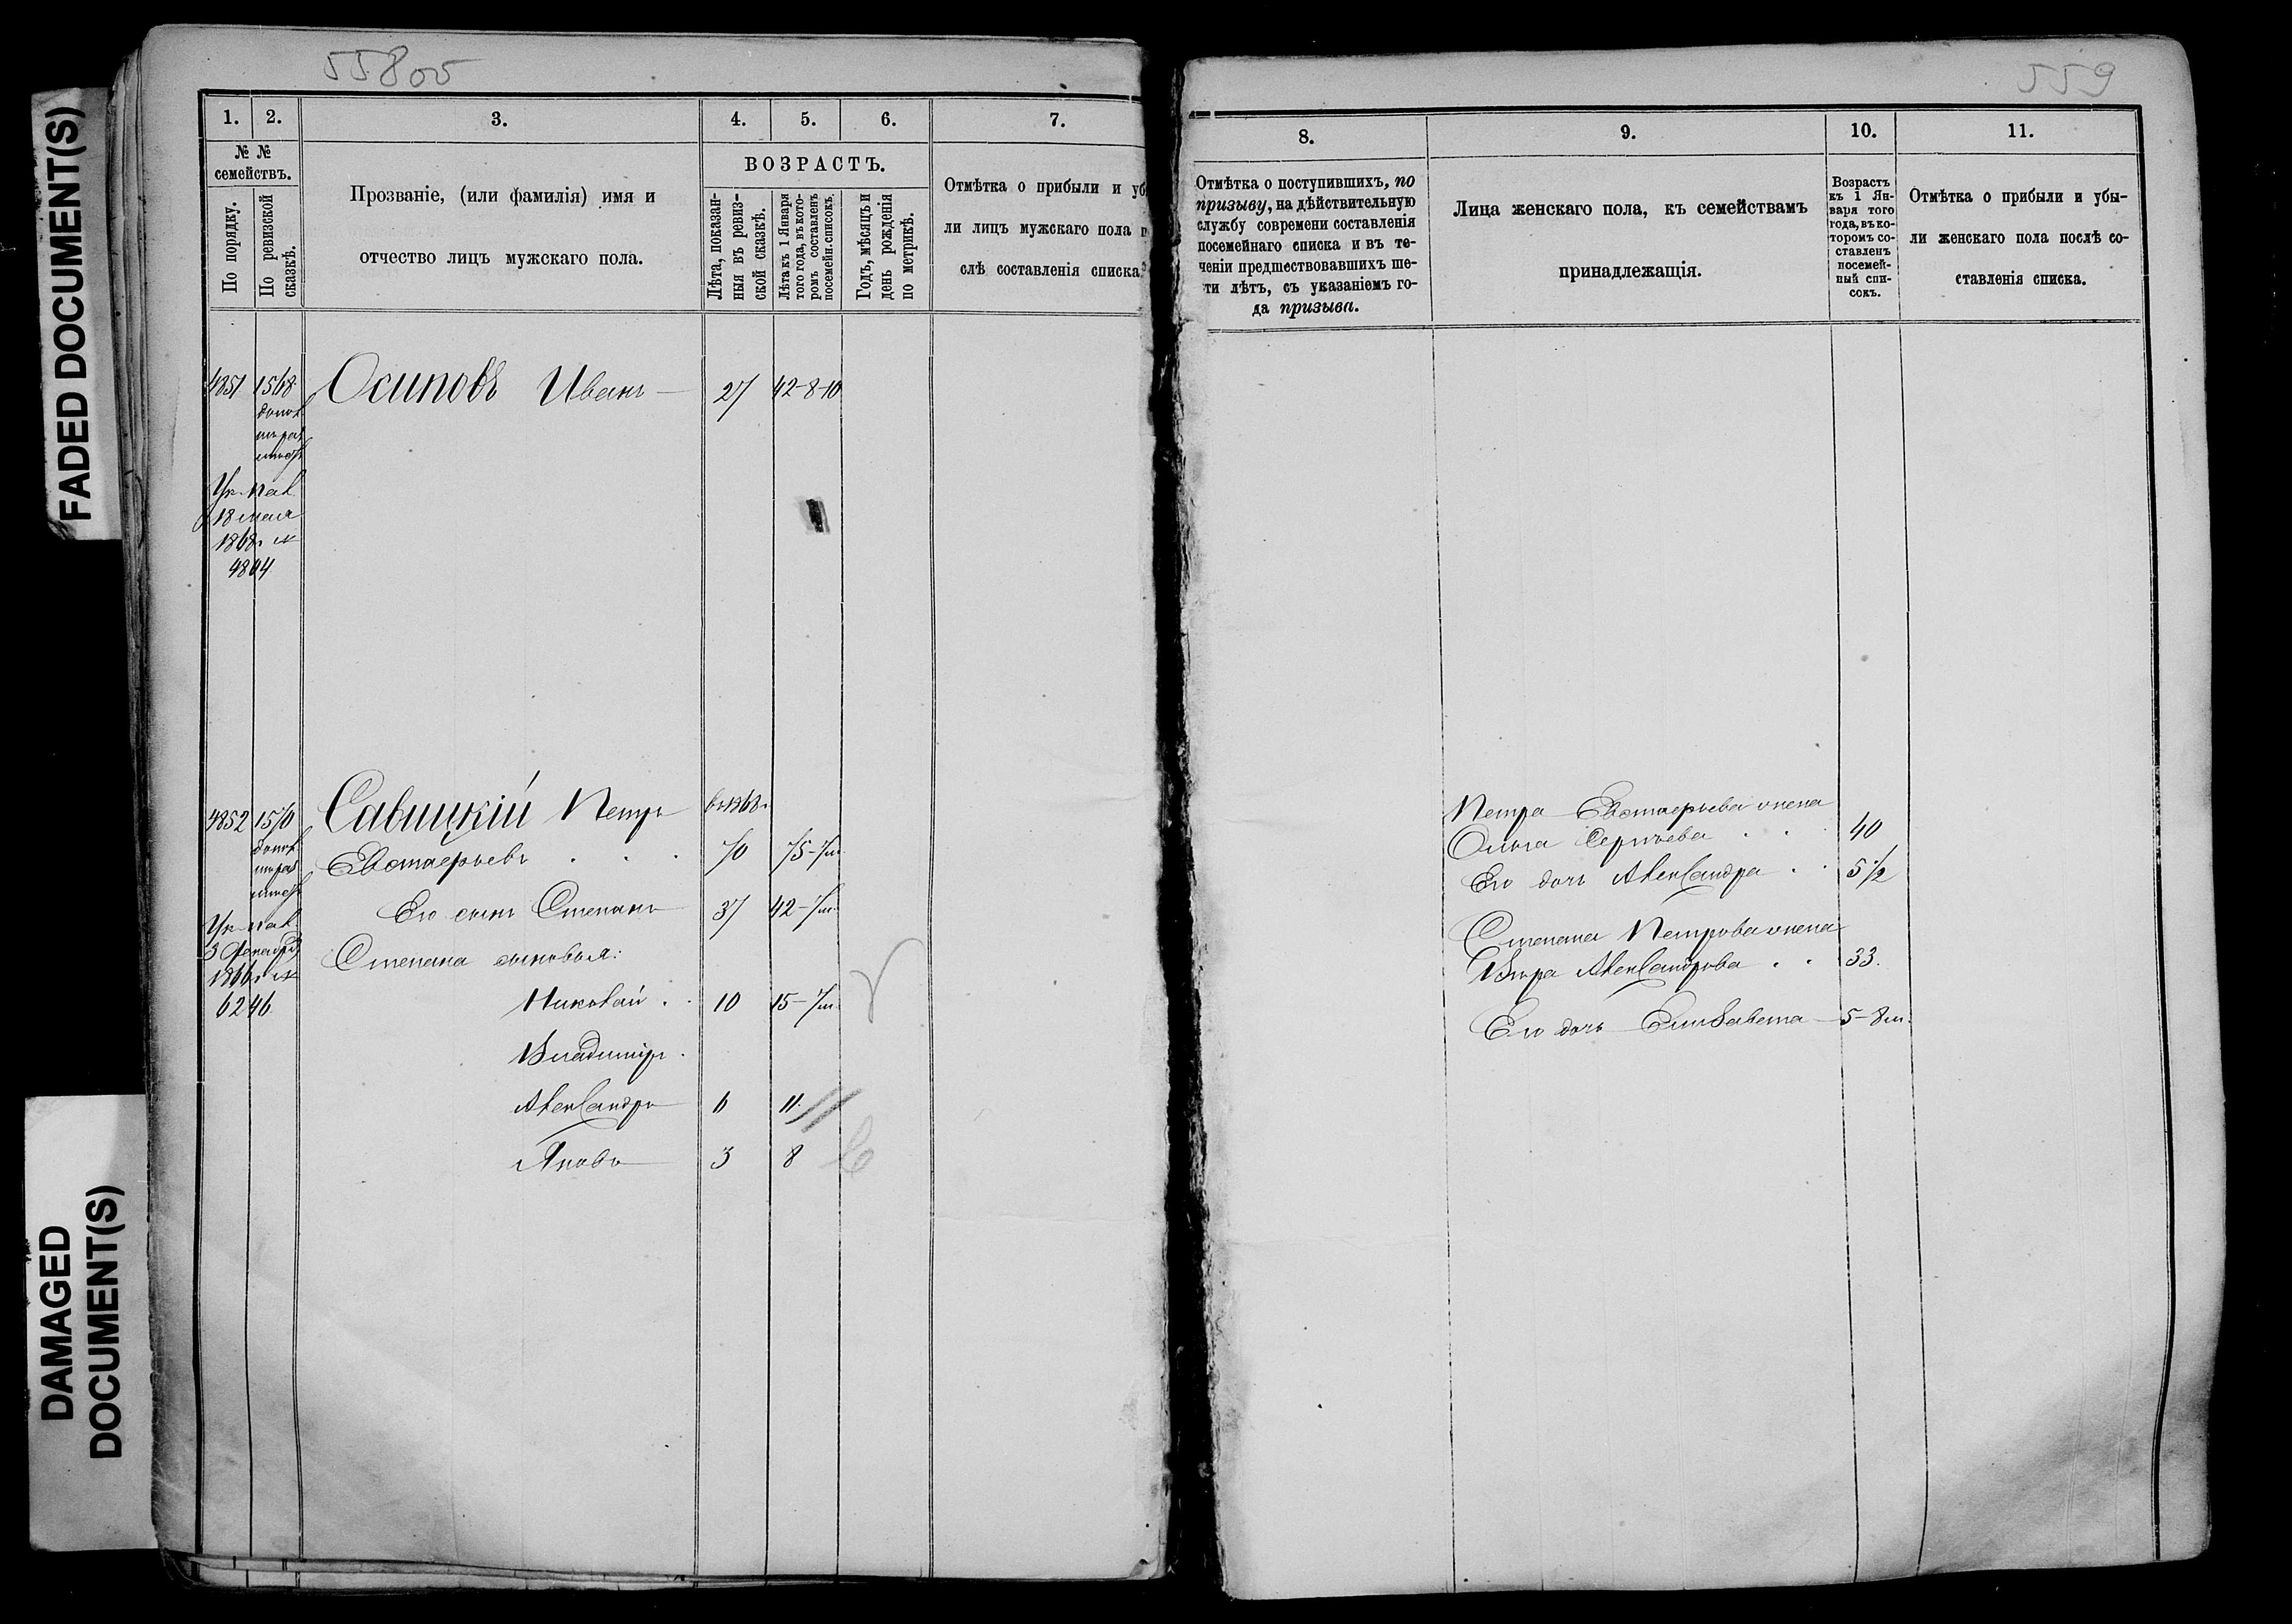 FADED DOCUMENT(S)
DAMAGED
DOCUMENT(S)
558об
1. 2. 3. 4. 5. 6. 7.
№ №
семействъ.
По порядку.
По ревизской
сказкѣ.
Прозваніе, (или фамилія) имя и
отчество лицъ мужскаго пола.
ВОЗРАСТЪ.
Лѣта, показан-
ныя въ ревиз-
ской сказкѣ.
Лѣта къ 1 Января
того года, въ кото-
ромъ составленъ
посемейн. списокъ.
Годъ, мѣсяцъ и
день рожденія
по метрикѣ.
Отмѣтка о прибыли и уб
ли лицъ мужскаго пола п
слѣ составленія списка.
4851 1568 Осиповъ Иванъ 27 42-8-10
18 мая
1868 г. №
4804
4852 1570 Савицкій Петръ въ 1868 г.
Евстафьевъ 70 75-7м.
Его сынъ Степанъ 37 42-7м.
Степана сыновья:
Николай 10 15-7м.
Владиміръ
Александръ 6 11
Яковъ 3 8
3 Декабря
1866 г. №
6246
559
8. 9. 10. 11.
Отмѣтка о поступившихъ, по
призыву, на дѣйствительную
службу современи составленія
посемейнаго списка и въ те-
ченіи предшествовавшихъ ше-
ти лѣтъ, съ указаніемъ го-
да призыва.
Лица женскаго пола, къ семействамъ
принадлежащія.
Возрастъ
къ 1 Ян-
варя того
года, въ ко-
торомъ со-
ставленъ
посемей-
ный спи-
сокъ.
Отмѣтка о прибыли и убы-
ли женскаго пола послѣ со-
ставленія списка.
Петра Евстафьева жена
Ольга Сергѣева 40
Его дочь Александра 5 1/2
Степана Петрова жена
Вѣра Александрова 33.
Его дочь Елизавета 5-8м.